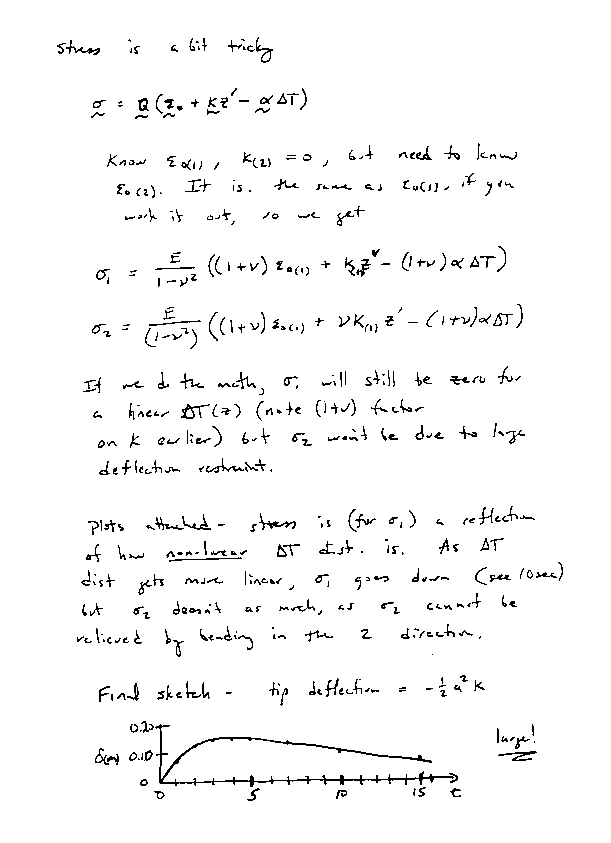 Stress is a bit tricky
σ = Q (ε₀ + κz' - αΔT)
Know ε₀₍₁₎, κ₍₂₎ = 0, but need to know
ε₀₍₂₎. It is. the same as ε₀₍₁₎, if you
work it out, so we get
σ₁ = E/(1-ν²) ((1+ν) ε₀₍₁₎ + κ₍₁₎z' - (1+ν)αΔT)
σ₂ = E/(1-ν²) ((1+ν) ε₀₍₁₎ + νκ₍₁₎ z' - (1+ν)αΔT)
If we do the math, σ₁ will still be zero for
a linear ΔT(z) (note (1+ν) factor
on κ earlier) but σ₂ won't be due to large
deflection restraint.
Plots attached - stress is (for σ₁) a reflection
of how non-linear ΔT dist. is. As ΔT
dist gets more linear, σ₁ goes down (see 10sec)
but σ₂ doesn't as much, as σ₂ cannot be
relieved by bending in the 2 direction.
Final sketch - tip deflection = -½ a² κ
0.20
large!
δ(m) 0.10
0
0 5 10 15 t